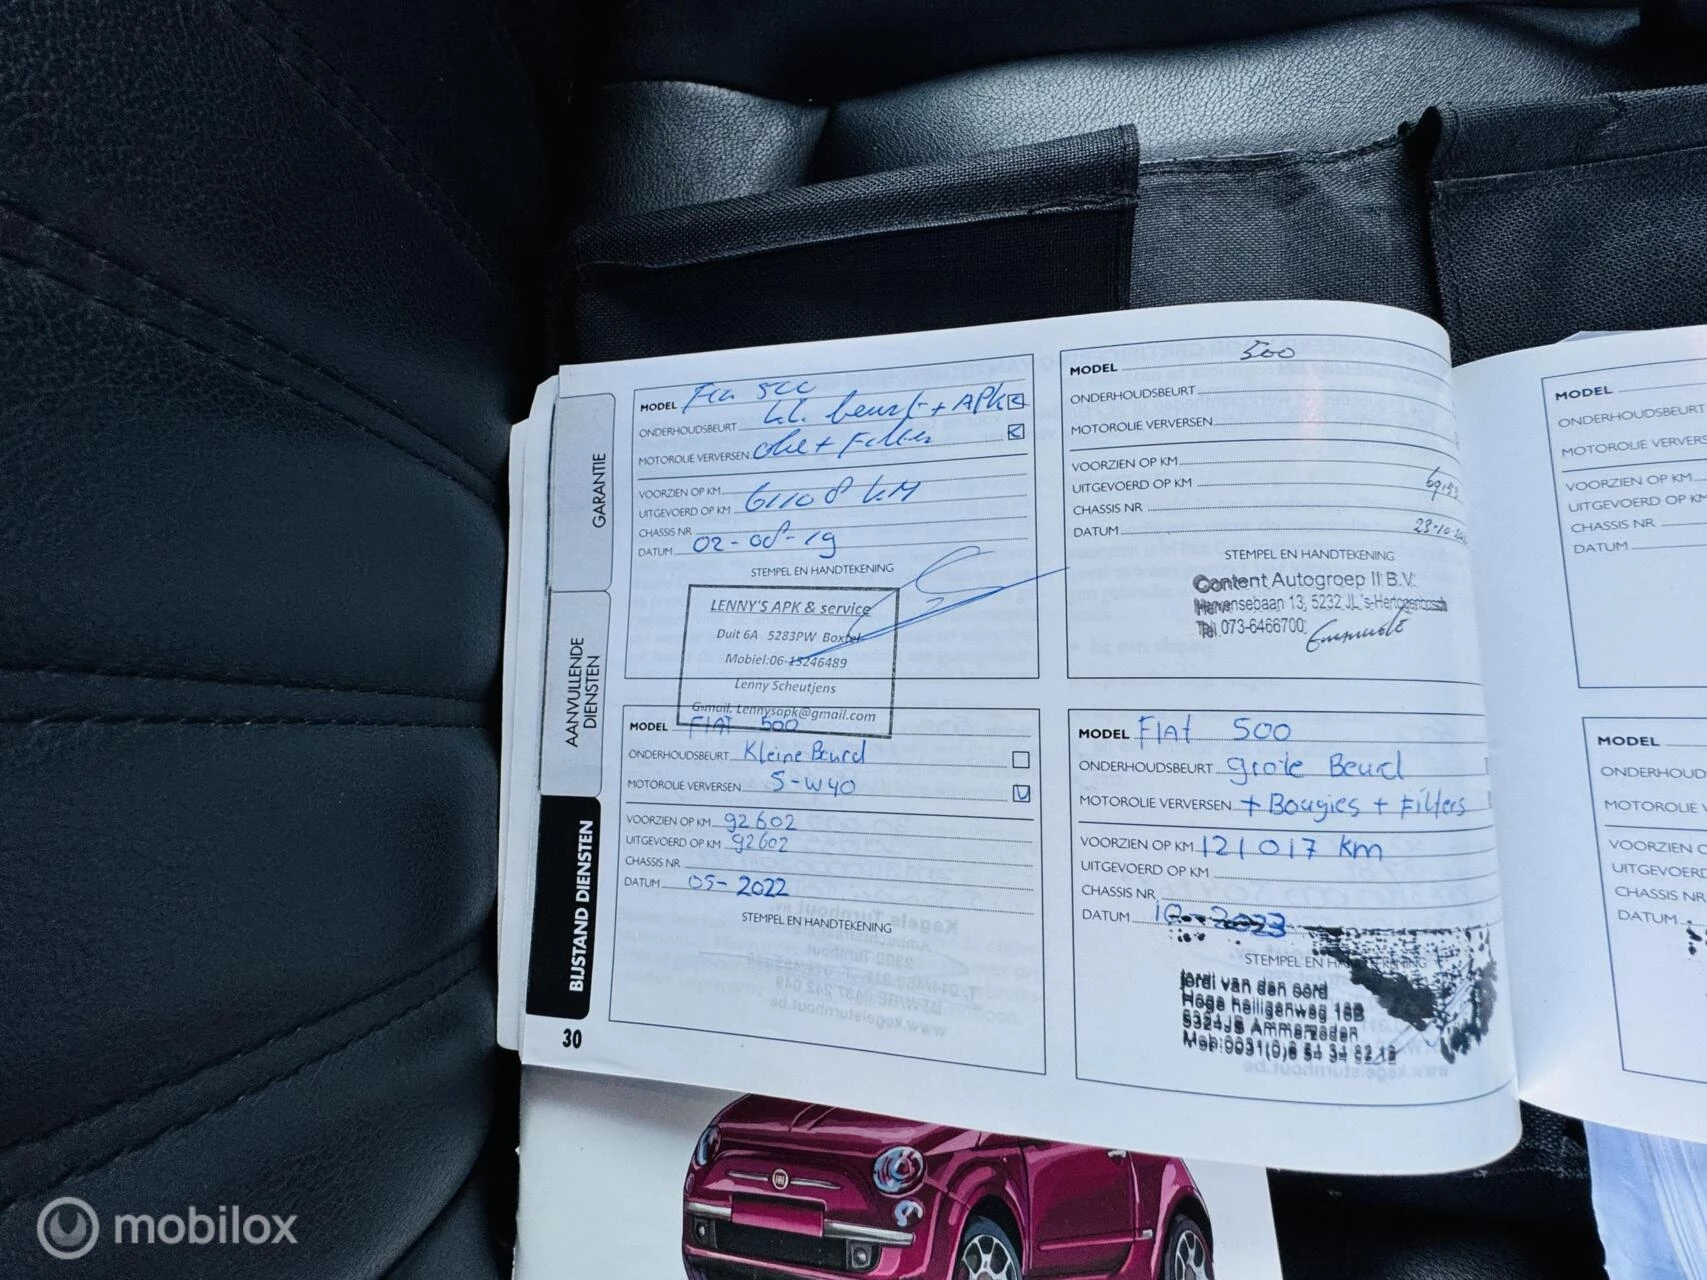 GARANTIE
AANVULLENDE
DIENSTEN
BIJSTAND DIENSTEN
30
MODEL 500
ONDERHOUDSBEURT kl. beurt + APK
MOTOROLIE VERVERSEN olie + Filter
VOORZIEN OP KM
UITGEVOERD OP KM 61108 KM
CHASSIS NR
DATUM 02-08-19
STEMPEL EN HANDTEKENING
LENNY'S APK & service
Duit 6A 5283PW Boxtel
Mobiel:06-15246489
Lenny Scheutjens
G-mail. Lennysapk@gmail.com
MODEL 500
ONDERHOUDSBEURT
MOTOROLIE VERVERSEN
VOORZIEN OP KM
UITGEVOERD OP KM
CHASSIS NR
DATUM
STEMPEL EN HANDTEKENING
Content Autogroep II B.V.
Hervensebaan 13, 5232 JL 's-Hertogenbosch
Tel. 073-6466700
MODEL FIAT 500
ONDERHOUDSBEURT Kleine Beurd
MOTOROLIE VERVERSEN 5-W40
VOORZIEN OP KM 92602
UITGEVOERD OP KM 92602
CHASSIS NR
DATUM 05-2022
STEMPEL EN HANDTEKENING
MODEL FIAt 500
ONDERHOUDSBEURT grote Beurd
MOTOROLIE VERVERSEN + Bougies + Filters
VOORZIEN OP KM 121017 km
UITGEVOERD OP KM
CHASSIS NR
DATUM 10-2023
STEMPEL EN HANDTEKENING
jordi van den oord
Hoge heiligenweg 16B
5324JB Ammerzoden
MODEL
ONDERHOUDSBEURT
MOTOROLIE
VOORZIEN OP KM
UITGEVOERD OP KM
CHASSIS NR
DATUM
MODEL
MOTOROLIE
VOORZIEN
CHASSIS NR
DATUM
FIAT
mobilox